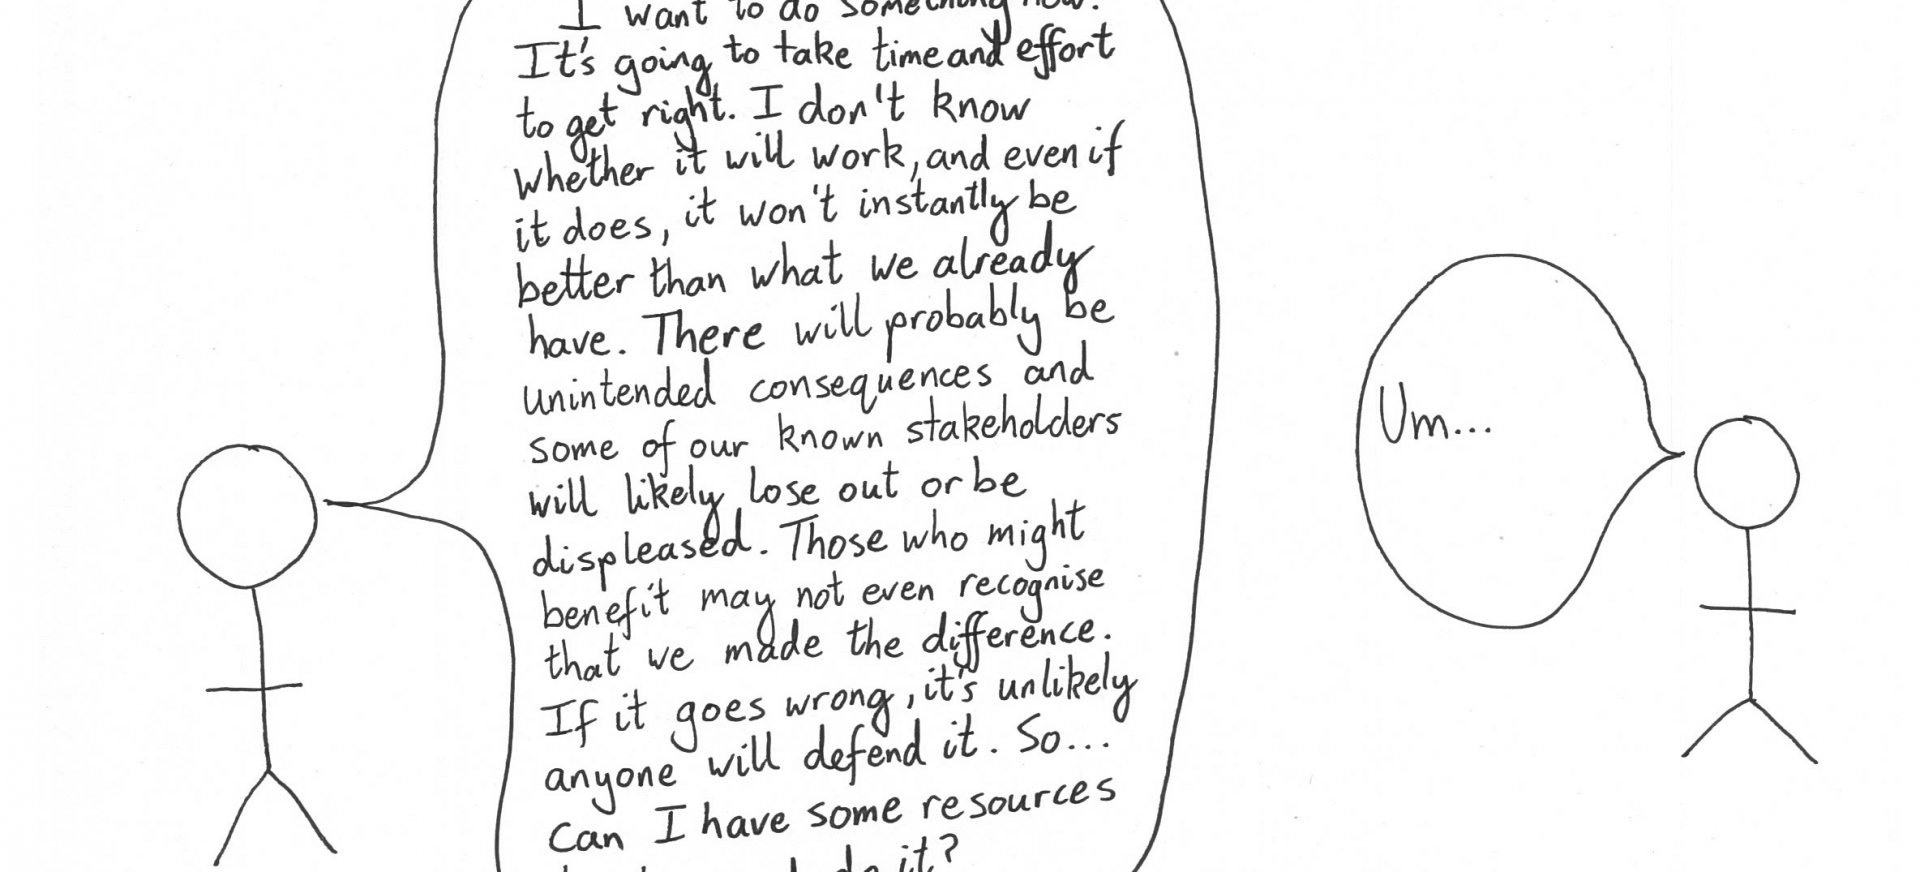 I want to do something new.
It's going to take time and effort
to get right. I don't know
whether it will work, and even if
it does, it won't instantly be
better than what we already
have. There will probably be
unintended consequences and
some of our known stakeholders
will likely lose out or be
displeased. Those who might
benefit may not even recognise
that we made the difference.
If it goes wrong, it's unlikely
anyone will defend it. So...
Can I have some resources
do it?
Um...